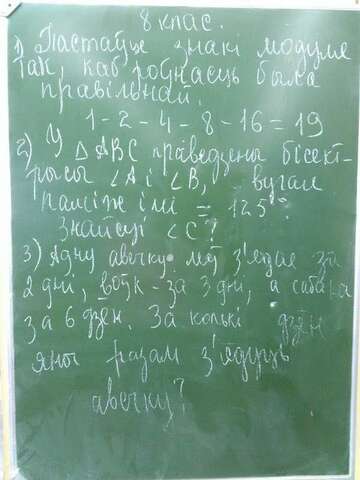 8 клас.
1) Пастаўце знакі модуля
так, каб роўнасць была
правільнай.
1-2-4-8-16=19
2) У △ABC праведзены бісект-
рысы ∠A і ∠B, вугал
паміж імі = 125°
Знайсці ∠C?
3) Адну авечку леў з'ядае за
2 дні, воўк - за 3 дні, а сабака
за 6 дзён. За колькі дзён
яны разам з'ядуць
авечку?